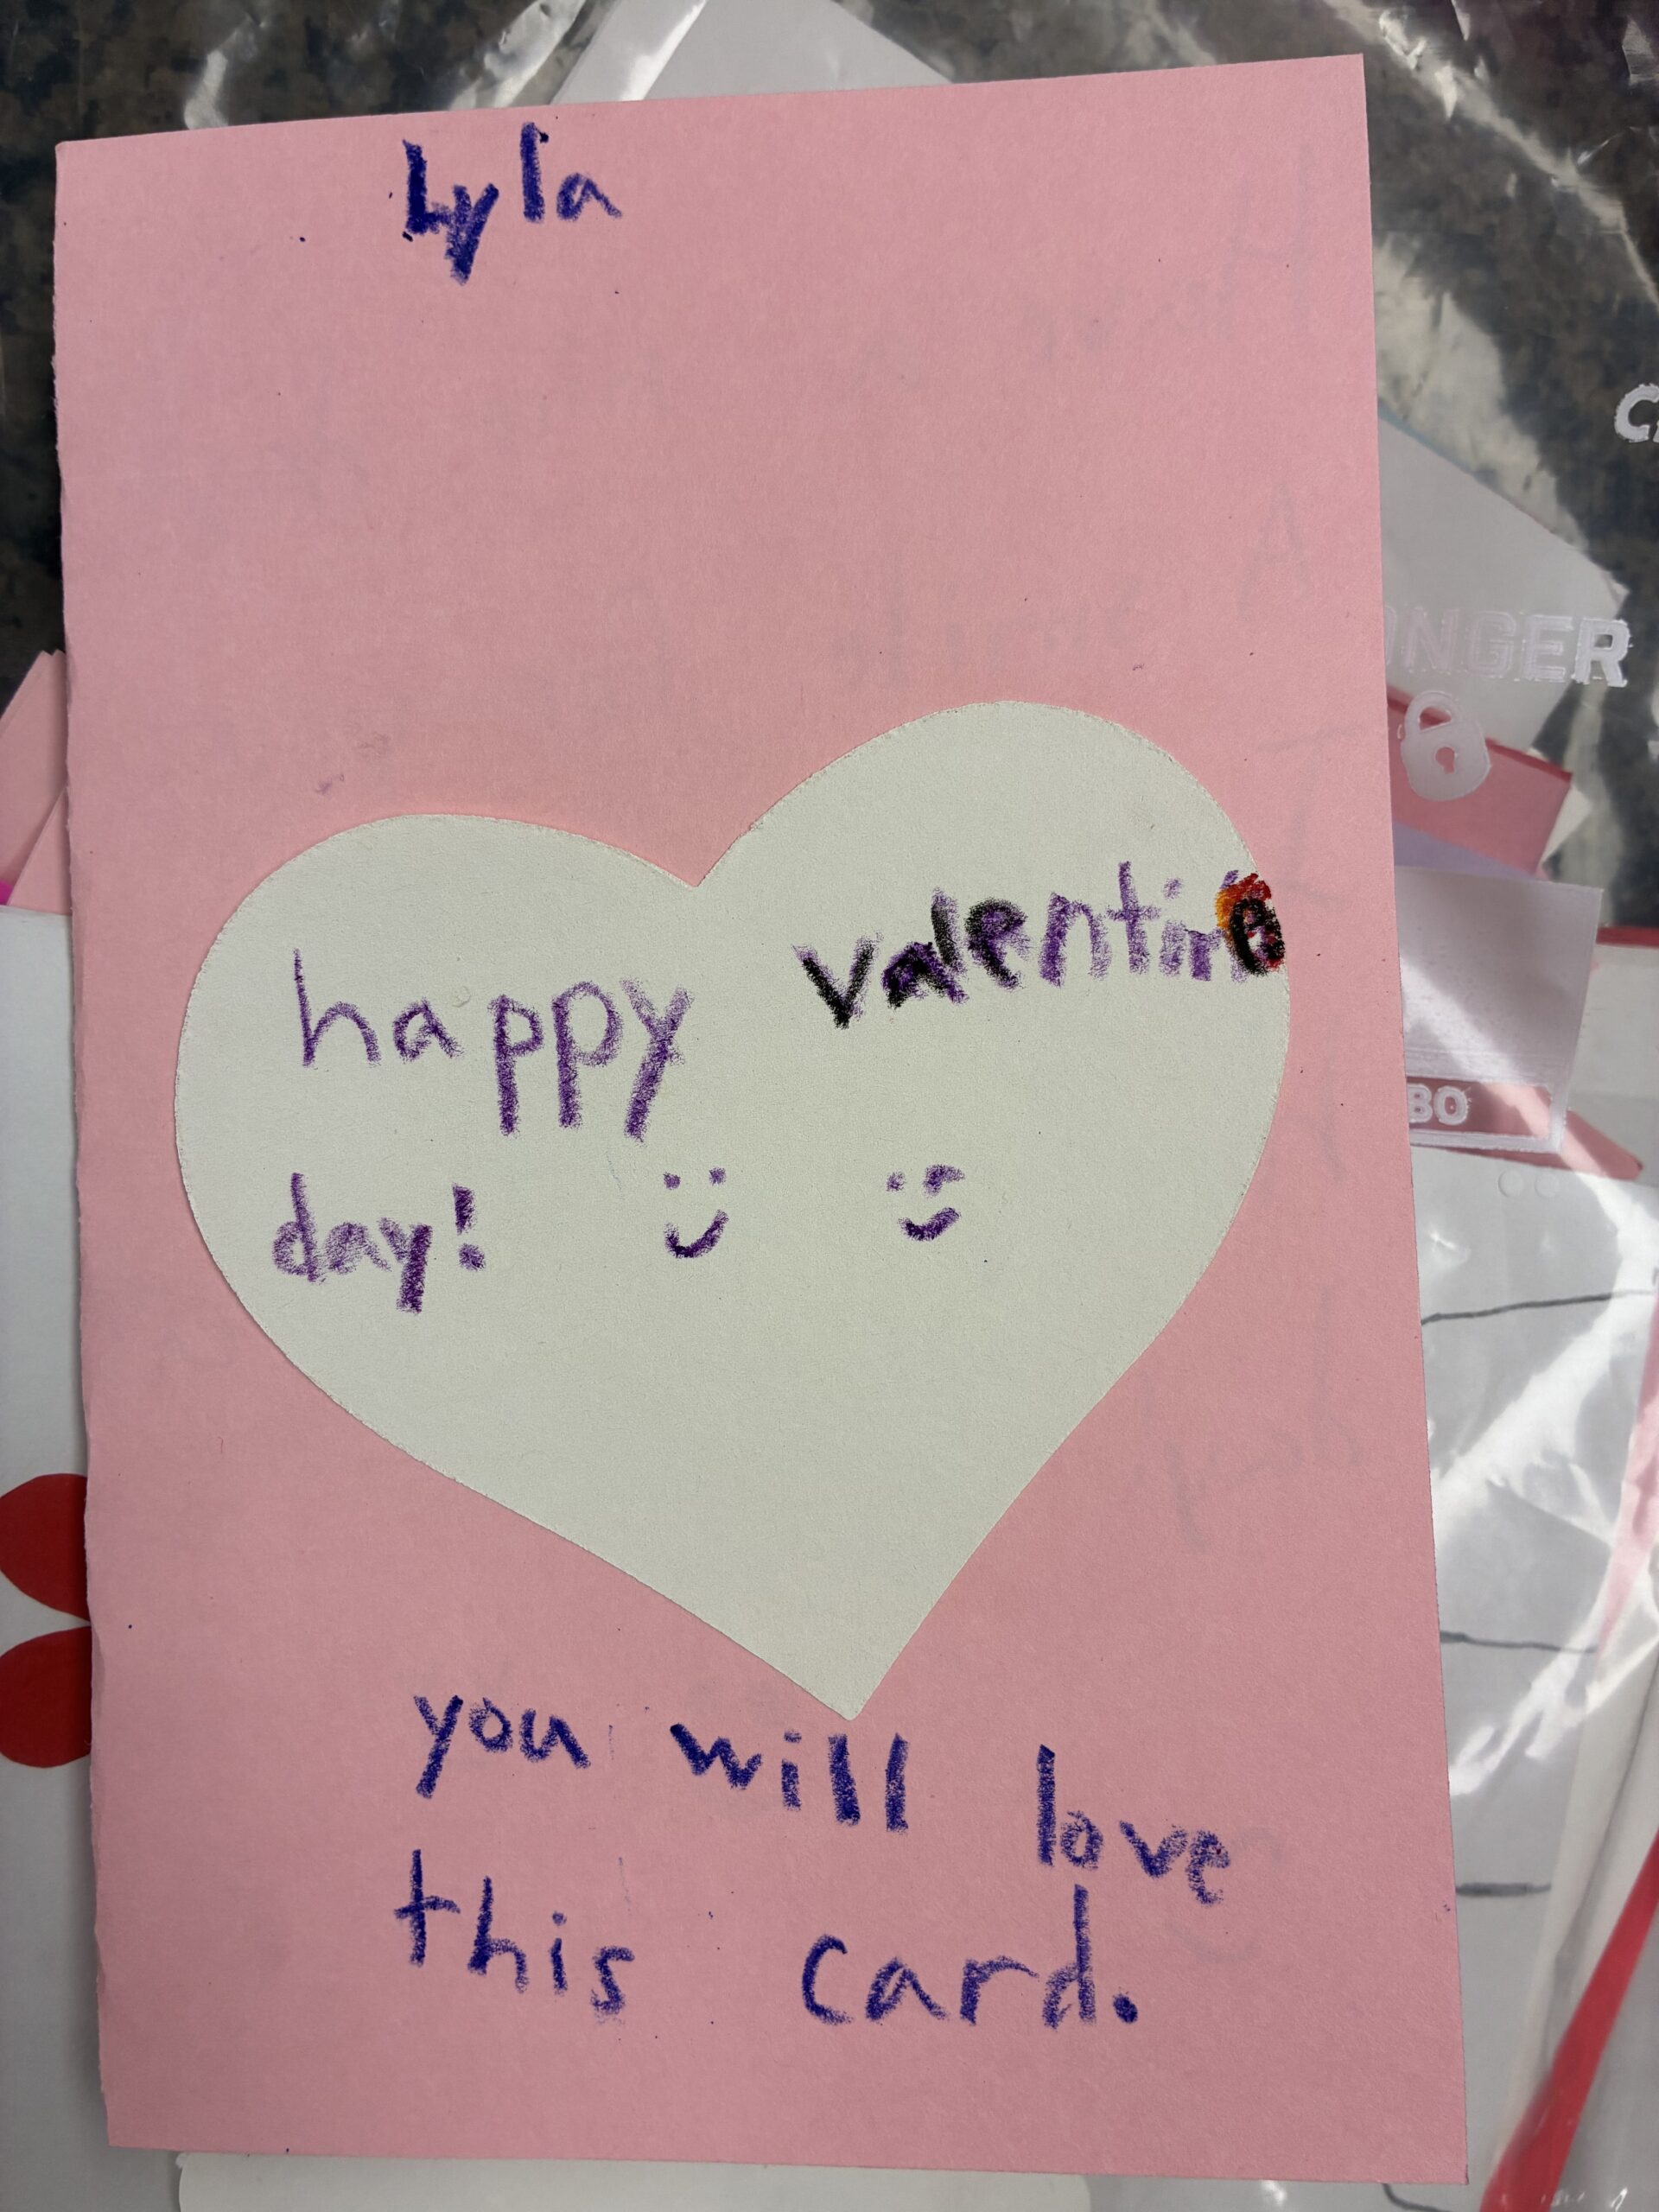 Lyla
happy valentine
day!
you will love
this card.
NGER
BO